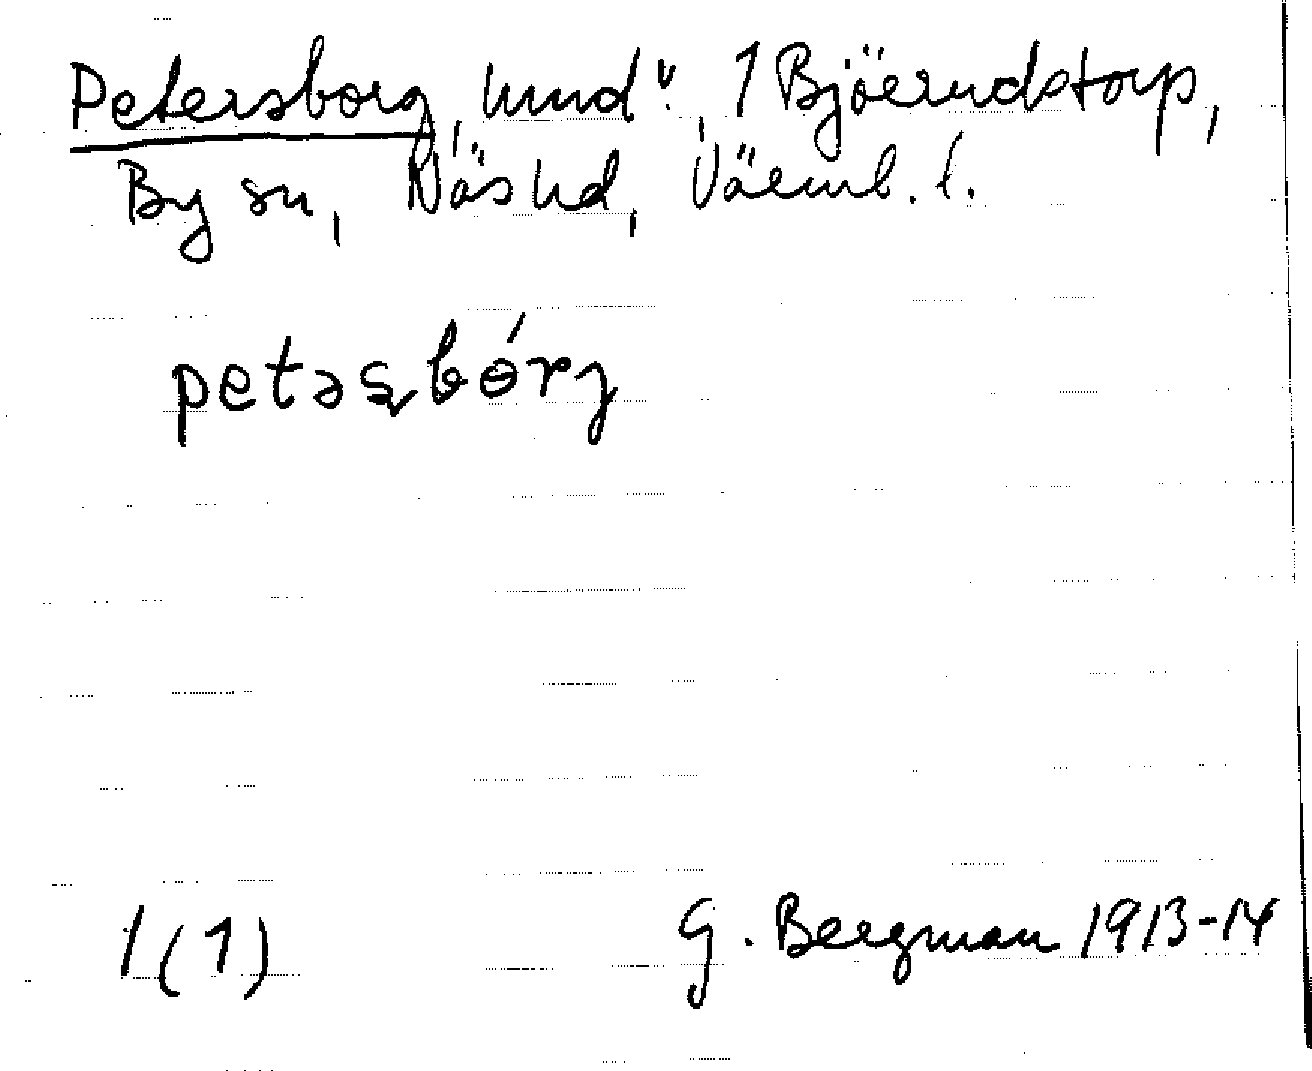 Petersborg, lund", 1 Björndstorp,
By sn, Näs hd, Värml. l.
petəʂbɵ́rj
1(1) G. Bergman 1913-14